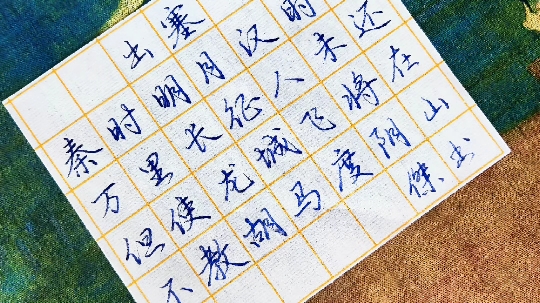 出塞
秦时明月汉时
万里长征人未还
但使龙城飞将在
不教胡马度阴山
傑书